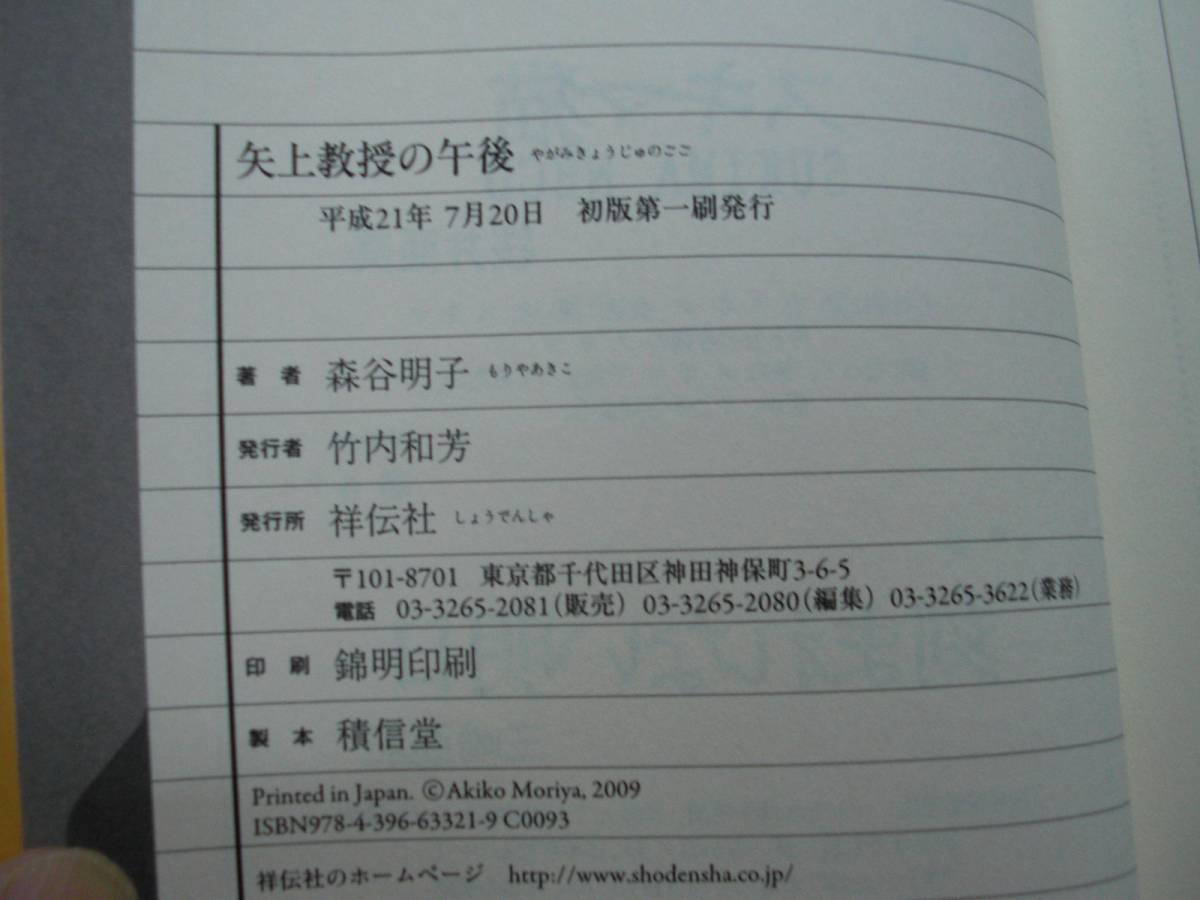 矢上教授の午後 やがみきょうじゅのごご
平成21年 7月20日 初版第一刷発行
著 者 森谷明子 もりやあきこ
発行者 竹内和芳
発行所 祥伝社 しょうでんしゃ
〒101-8701 東京都千代田区神田神保町3-6-5
電話 03-3265-2081(販売) 03-3265-2080(編集) 03-3265-3622(業務)
印 刷 錦明印刷
製 本 積信堂
Printed in Japan. ©Akiko Moriya, 2009
ISBN978-4-396-63321-9 C0093
祥伝社のホームページ http://www.shodensha.co.jp/